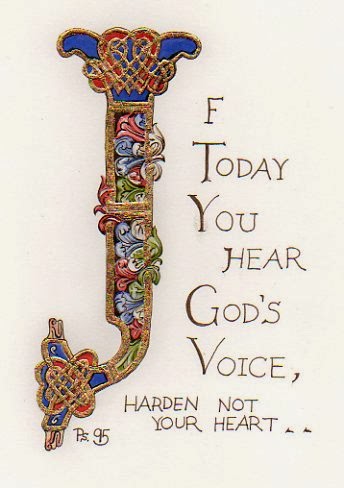 IF
TODAY
YOU
HEAR
GOD'S
VOICE,
HARDEN NOT
YOUR HEART . .
Ps. 95